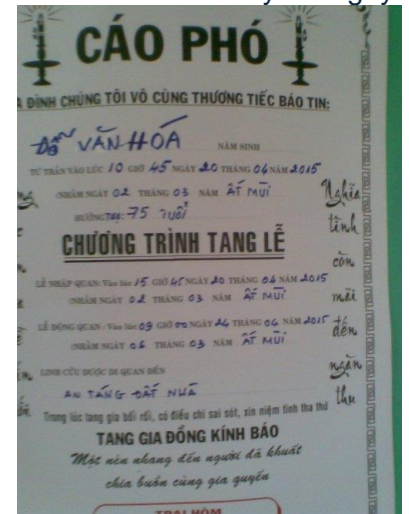 CÁO PHÓ
A ĐÌNH CHÚNG TÔI VÔ CÙNG THƯƠNG TIẾC BÁO TIN:
ĐỖ VĂN HÓA NĂM SINH
TỪ TRẦN VÀO LÚC 10 GIỜ 45 NGÀY 20 THÁNG 04 NĂM 2015
(NHẰM NGÀY 02 THÁNG 03 NĂM ẤT MÙI
HƯỞNG THỌ: 75 TUỔI
CHƯƠNG TRÌNH TANG LỄ
LỄ NHẬP QUAN: Vào lúc 15 GIỜ 45 NGÀY 20 THÁNG 04 NĂM 2015
(NHẰM NGÀY 02 THÁNG 03 NĂM ẤT MÙI
LỄ ĐỘNG QUAN: Vào lúc 09 GIỜ 00 NGÀY 24 THÁNG 04 NĂM 2015
(NHẰM NGÀY 06 THÁNG 03 NĂM ẤT MÙI
LINH CỬU ĐƯỢC DI QUAN ĐẾN
AN TÁNG ĐẤT NHÀ
Trong lúc tang gia bối rối, có điều chi sai sót, xin niệm tình tha thứ
TANG GIA ĐỒNG KÍNH BÁO
Một nén nhang đến người đã khuất
chia buồn cùng gia quyến
TRẠI HÒM
Nghĩa
tình
còn
mãi
đến
ngàn
thu